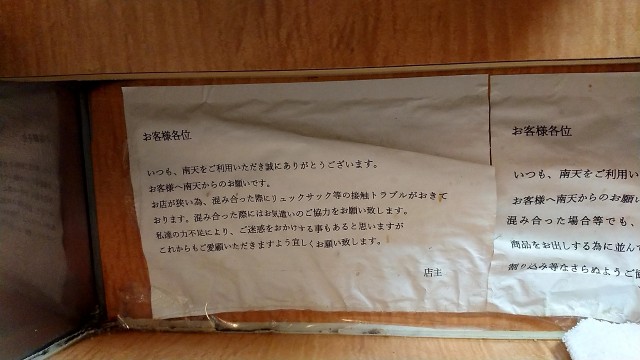 お客様各位
いつも、南天をご利用いただき誠にありがとうございます。
お客様へ南天からのお願いです。
お店が狭い為、混み合った際にリュックサック等の接触トラブルがおきて
おります。混み合った際にはお気遣いのご協力をお願い致します。
私達の力不足により、ご迷惑をおかけする事もあると思いますが
これからもご愛顧いただきますよう宜しくお願い致します。
店主
お客様各位
いつも、南天をご利用い
お客様へ南天からのお願い
混み合った場合等でも、
商品をお出しする為に並んで
割り込み等なさらぬようご協